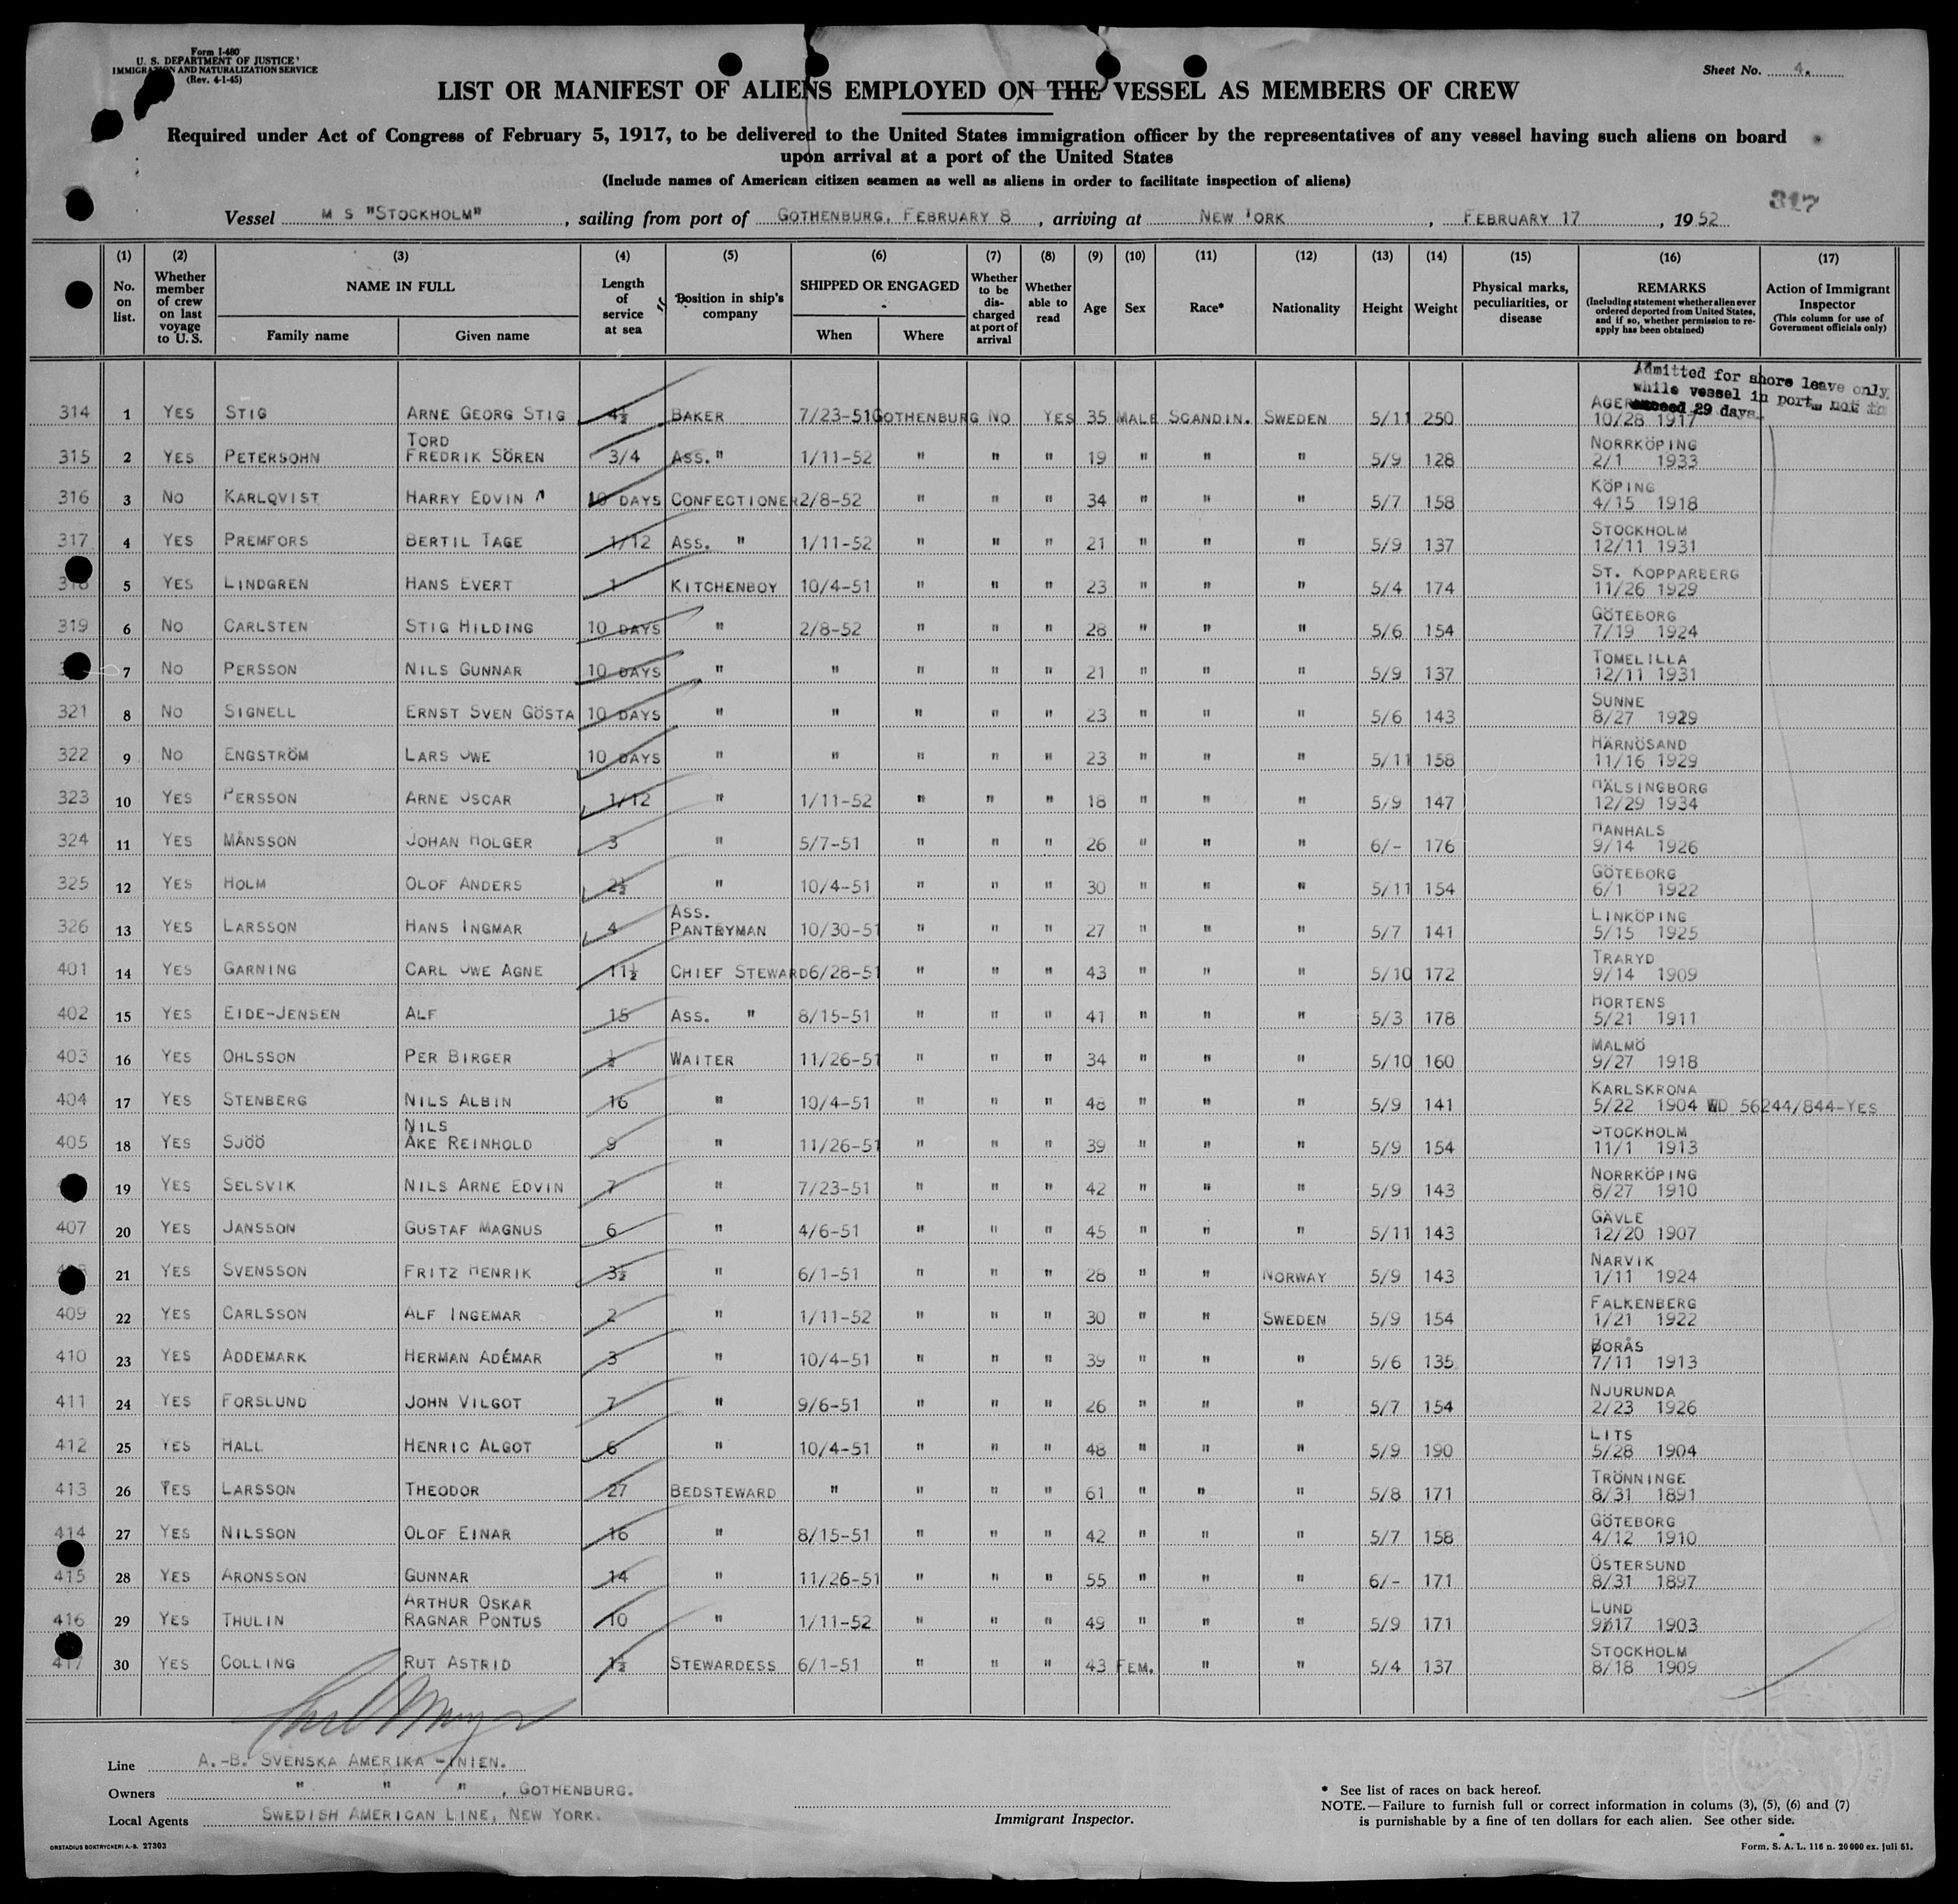 Form I-480
U. S. DEPARTMENT OF JUSTICE
IMMIGRATION AND NATURALIZATION SERVICE
(Rev. 4-1-45)
Sheet No. 4.
LIST OR MANIFEST OF ALIENS EMPLOYED ON THE VESSEL AS MEMBERS OF CREW
Required under Act of Congress of February 5, 1917, to be delivered to the United States immigration officer by the representatives of any vessel having such aliens on board
upon arrival at a port of the United States
(Include names of American citizen seamen as well as aliens in order to facilitate inspection of aliens)
317
Vessel M S "STOCKHOLM", sailing from port of GOTHENBURG, FEBRUARY 8, arriving at NEW YORK, FEBRUARY 17, 1952
(1) No. on list. (2) Whether member of crew on last voyage to U. S. (3) NAME IN FULL Family name Given name (4) Length of service at sea (5) Position in ship's company (6) SHIPPED OR ENGAGED When Where (7) Whether to be discharged at port of arrival (8) Whether able to read (9) Age (10) Sex (11) Race* (12) Nationality (13) Height (14) Weight (15) Physical marks, peculiarities, or disease (16) REMARKS (Including statement whether alien ever ordered deported from United States, and if so, whether permission to re-apply has been obtained) (17) Action of Immigrant Inspector (This column for use of Government officials only)
Admitted for shore leave only
while vessel in port, not to
exceed 29 days.
314 1 YES STIG ARNE GEORG STIG 4½ BAKER 7/23-51 GOTHENBURG NO YES 35 MALE SCANDIN. SWEDEN 5/11 250 10/28 1917
315 2 YES PETERSOHN TORD FREDRIK SÖREN 3/4 ASS. " 1/11-52 " " " 19 " " " 5/9 128 NORRKÖPING 2/1 1933
316 3 NO KARLQVIST HARRY EDVIN 10 DAYS CONFECTIONER 2/8-52 " " " 34 " " " 5/7 158 KÖPING 4/15 1918
317 4 YES PREMFORS BERTIL TAGE 1/12 ASS. " 1/11-52 " " " 21 " " " 5/9 137 STOCKHOLM 12/11 1931
318 5 YES LINDGREN HANS EVERT 1 KITCHENBOY 10/4-51 " " " 23 " " " 5/4 174 ST. KOPPARBERG 11/26 1929
319 6 NO CARLSTEN STIG HILDING 10 DAYS " 2/8-52 " " " 28 " " " 5/6 154 GÖTEBORG 7/19 1924
7 NO PERSSON NILS GUNNAR 10 DAYS " " " " " 21 " " " 5/9 137 TOMELILLA 12/11 1931
321 8 NO SIGNELL ERNST SVEN GÖSTA 10 DAYS " " " " " 23 " " " 5/6 143 SUNNE 8/27 1929
322 9 NO ENGSTRÖM LARS OWE 10 DAYS " " " " " 23 " " " 5/11 158 HÄRNÖSAND 11/16 1929
323 10 YES PERSSON ARNE OSCAR 1/12 " 1/11-52 " " " 18 " " " 5/9 147 HÄLSINGBORG 12/29 1934
324 11 YES MÅNSSON JOHAN HOLGER 3 " 5/7-51 " " " 26 " " " 6/- 176 HANHALS 9/14 1926
325 12 YES HOLM OLOF ANDERS 2½ " 10/4-51 " " " 30 " " " 5/11 154 GÖTEBORG 6/1 1922
326 13 YES LARSSON HANS INGMAR 4 ASS. PANTRYMAN 10/30-51 " " " 27 " " " 5/7 141 LINKÖPING 5/15 1925
401 14 YES GARNING CARL OWE AGNE 11½ CHIEF STEWARD 6/28-51 " " " 43 " " " 5/10 172 TRARYD 9/14 1909
402 15 YES EIDE-JENSEN ALF 15 ASS. " 8/15-51 " " " 41 " " " 5/3 178 HORTENS 5/21 1911
403 16 YES OHLSSON PER BIRGER ½ WAITER 11/26-51 " " " 34 " " " 5/10 160 MALMÖ 9/27 1918
404 17 YES STENBERG NILS ALBIN 16 " 10/4-51 " " " 48 " " " 5/9 141 KARLSKRONA 5/22 1904 WD 56244/844-YES
405 18 YES SJÖÖ NILS ÅKE REINHOLD 9 " 11/26-51 " " " 39 " " " 5/9 154 STOCKHOLM 11/1 1913
19 YES SELSVIK NILS ARNE EDVIN 7 " 7/23-51 " " " 42 " " " 5/9 143 NORRKÖPING 8/27 1910
407 20 YES JANSSON GUSTAF MAGNUS 6 " 4/6-51 " " " 45 " " " 5/11 143 GÄVLE 12/20 1907
21 YES SVENSSON FRITZ HENRIK 3½ " 6/1-51 " " " 28 " " NORWAY 5/9 143 NARVIK 1/11 1924
409 22 YES CARLSSON ALF INGEMAR 2 " 1/11-52 " " " 30 " " SWEDEN 5/9 154 FALKENBERG 1/21 1922
410 23 YES ADDEMARK HERMAN ADÉMAR 3 " 10/4-51 " " " 39 " " " 5/6 135 BORÅS 7/11 1913
411 24 YES FORSLUND JOHN VILGOT 7 " 9/6-51 " " " 26 " " " 5/7 154 NJURUNDA 2/23 1926
412 25 YES HALL HENRIC ALGOT 6 " 10/4-51 " " " 48 " " " 5/9 190 LITS 5/28 1904
413 26 YES LARSSON THEODOR 27 BEDSTEWARD " " " " 61 " " " 5/8 171 TRÖNNINGE 8/31 1891
414 27 YES NILSSON OLOF EINAR 16 " 8/15-51 " " " 42 " " " 5/7 158 GÖTEBORG 4/12 1910
415 28 YES ARONSSON GUNNAR 14 " 11/26-51 " " " 55 " " " 6/- 171 ÖSTERSUND 8/31 1897
416 29 YES THULIN ARTHUR OSKAR RAGNAR PONTUS 10 " 1/11-52 " " " 49 " " " 5/9 171 LUND 9/17 1903
417 30 YES COLLING RUT ASTRID 1½ STEWARDESS 6/1-51 " " " 43 FEM. " " 5/4 137 STOCKHOLM 8/18 1909
Line A.-B. SVENSKA AMERIKA LINIEN.
Owners " " " , GOTHENBURG.
Local Agents SWEDISH AMERICAN LINE, NEW YORK.
Immigrant Inspector.
* See list of races on back hereof.
NOTE.—Failure to furnish full or correct information in colums (3), (5), (6) and (7)
is punishable by a fine of ten dollars for each alien. See other side.
ORSTADIUS BOKTRYCKERI A.-B. 27303
Form. S. A. L. 116 n. 20 000 ex. juli 51.